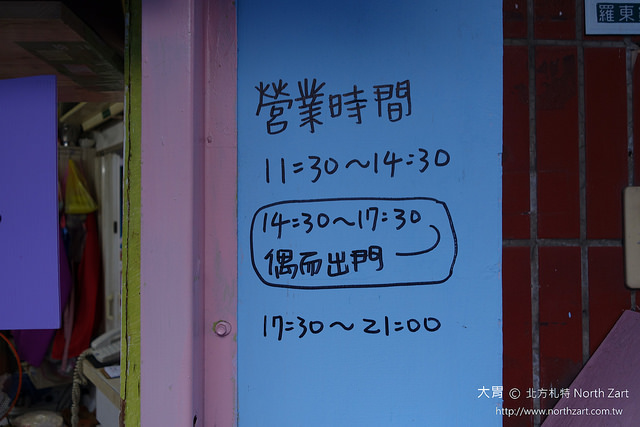 羅東
營業時間
11:30~14:30
14:30~17:30
偶而出門
17:30~21:00
大胃 © 北方札特 North Zart
http://www.northzart.com.tw